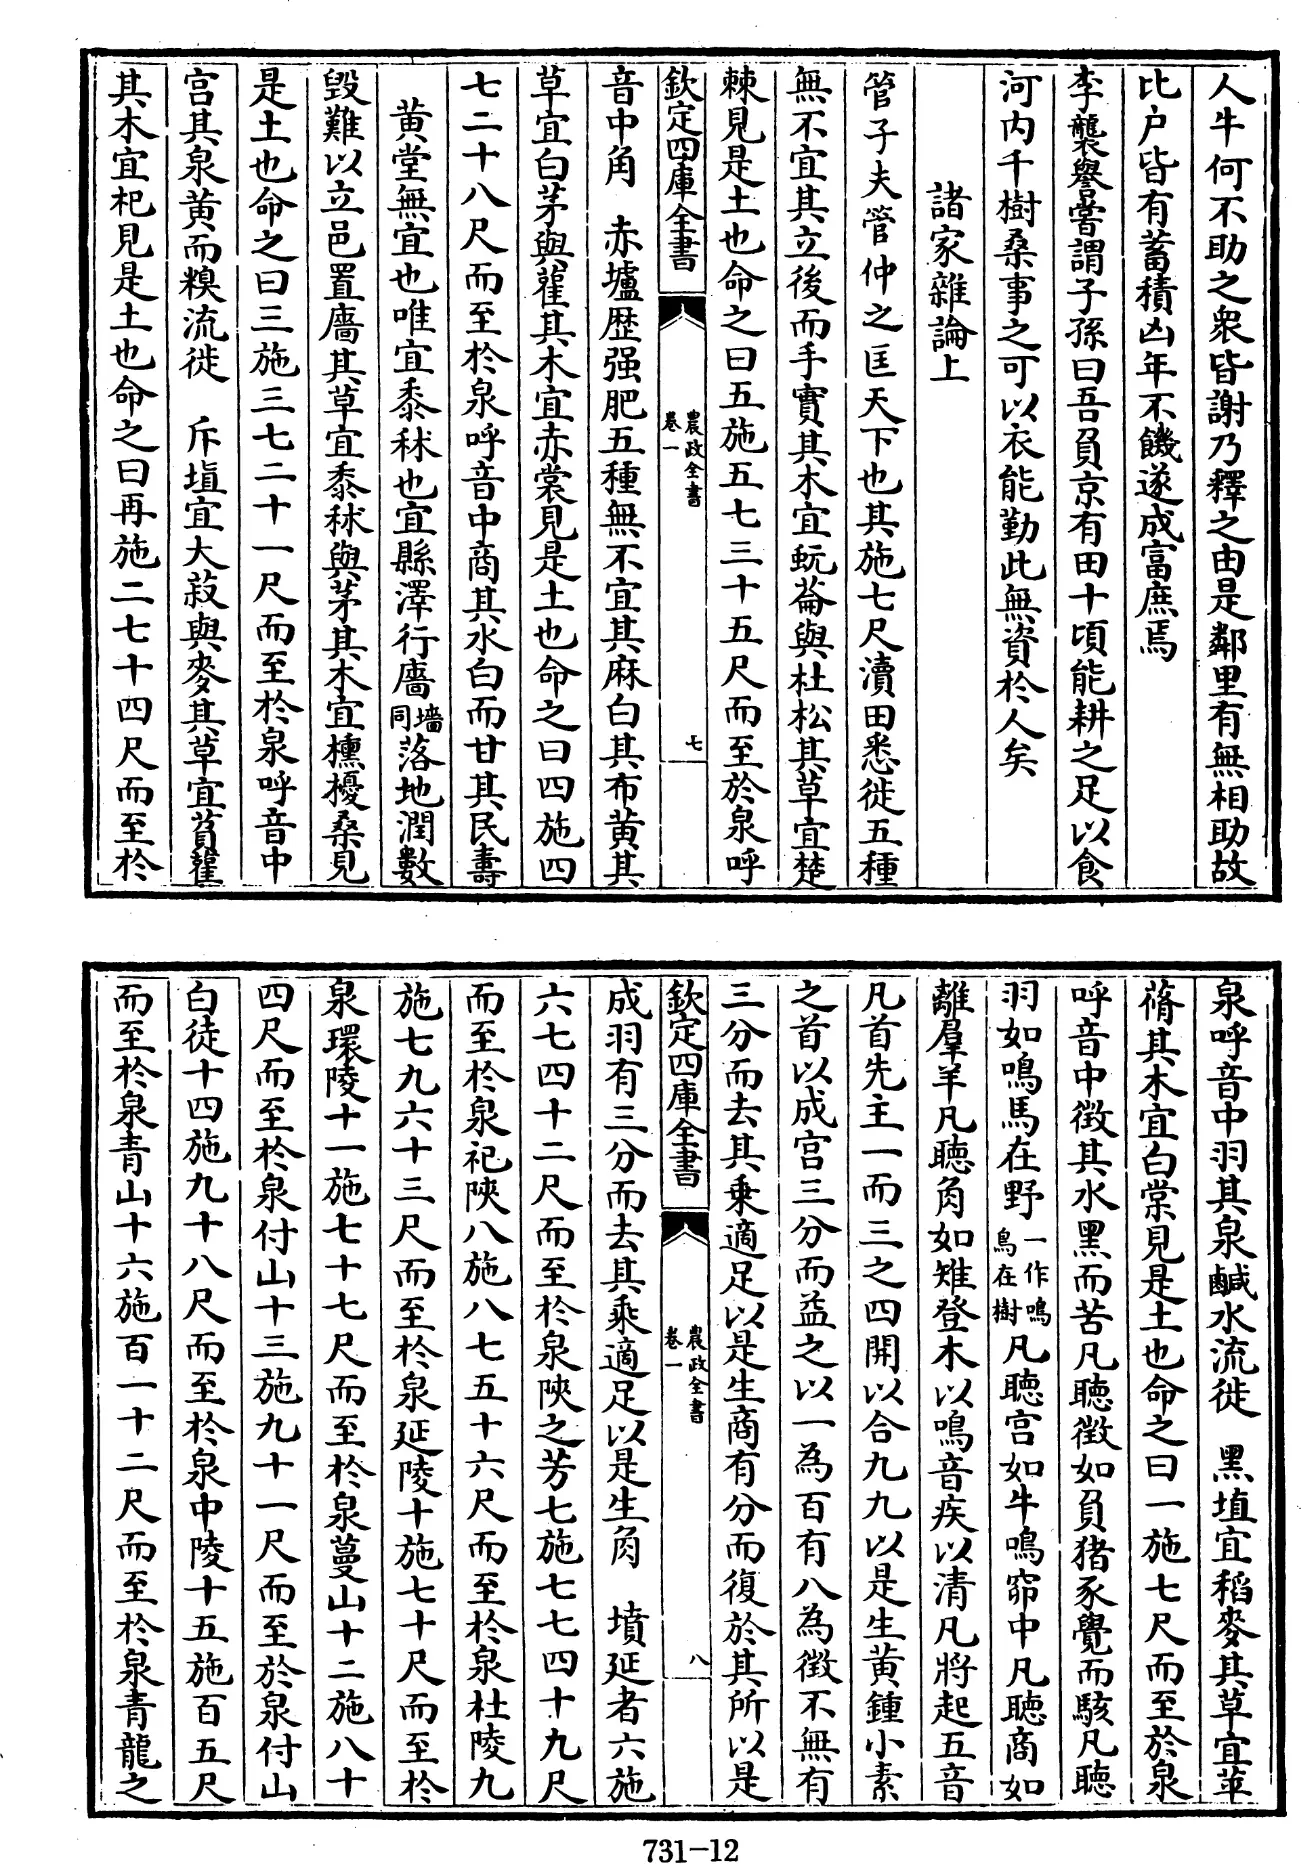 人牛何不助之衆皆謝乃釋之由是鄰里有無相助故
比户皆有蓄積凶年不饑遂成富庶焉
李襲譽嘗謂子孫曰吾負京有田十頃能耕之足以食
河内千樹桑事之可以衣能勤此無資於人矣
諸家雜論上
管子夫管仲之匡天下也其施七尺瀆田悉徙五種
無不宜其立後而手實其木宜蚖菕與杜松其草宜楚
棘見是土也命之曰五施五七三十五尺而至於泉呼
欽定四庫全書
農政全書
卷一
七
音中角　赤壚歴强肥五種無不宜其麻白其布黄其
草宜白茅與雚其木宜赤棠見是土也命之曰四施四
七二十八尺而至於泉呼音中商其水白而甘其民壽
黄堂無宜也唯宜黍秫也宜縣澤行廧墻同落地潤數
毁難以立邑置廧其草宜黍秫與茅其木宜櫄擾桑見
是土也命之曰三施三七二十一尺而至於泉呼音中
宫其泉黄而糗流徙　斥埴宜大菽與麥其草宜萯雚
其木宜杞見是土也命之曰再施二七十四尺而至於
泉呼音中羽其泉鹹水流徙　黑埴宜稻麥其草宜苹
蓨其木宜白棠見是土也命之曰一施七尺而至於泉
呼音中徵其水黑而苦凡聽徵如負猪豕覺而駭凡聽
羽如鳴馬在野一作鳴鳥在樹凡聽宫如牛鳴窌中凡聽商如
離羣羊凡聽角如雉登木以鳴音疾以清凡將起五音
凡首先主一而三之四開以合九九以是生黄鍾小素
之首以成宫三分而益之以一為百有八為徵不無有
三分而去其乗適足以是生商有分而復於其所以是
欽定四庫全書
農政全書
卷一
八
成羽有三分而去其乘適足以是生角　墳延者六施
六七四十二尺而至於泉陜之芳七施七七四十九尺
而至於泉祀陜八施八七五十六尺而至於泉杜陵九
施七九六十三尺而至於泉延陵十施七十尺而至於
泉環陵十一施七十七尺而至於泉蔓山十二施八十
四尺而至於泉付山十三施九十一尺而至於泉付山
白徒十四施九十八尺而至於泉中陵十五施百五尺
而至於泉青山十六施百一十二尺而至於泉青龍之
731-12